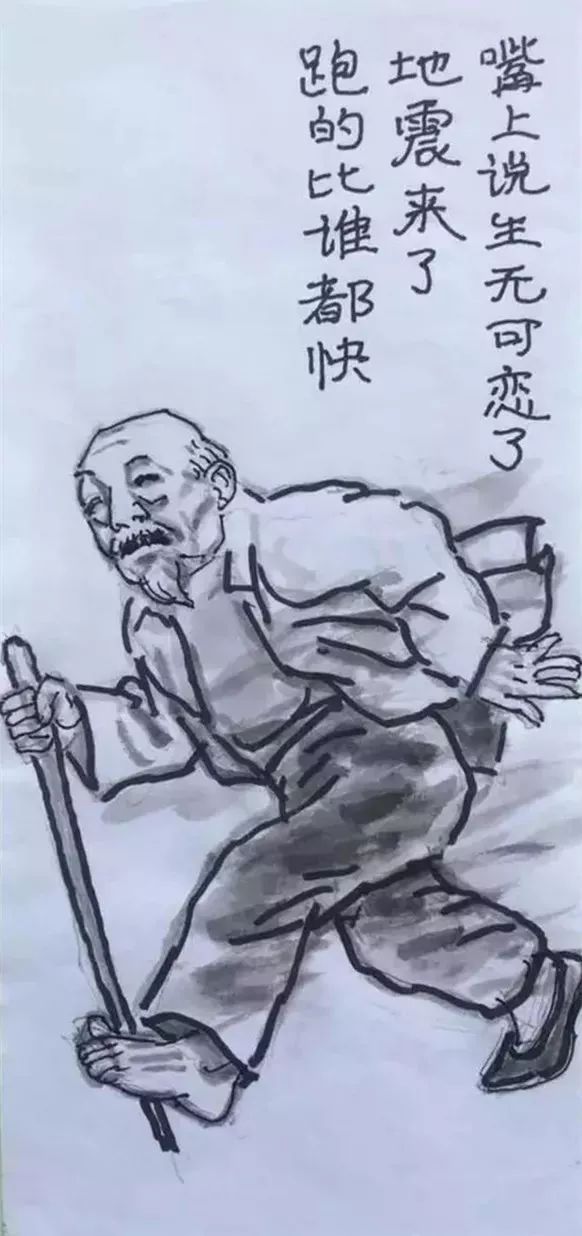 嘴上说生无可恋了
地震来了
跑的比谁都快